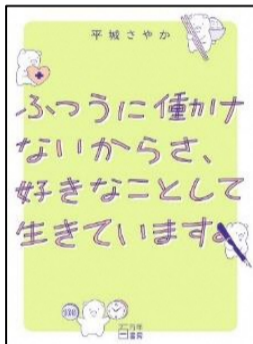 平城さやか
ふつうに働かけ
ないからさ、
好きなことして
生きています。
書房